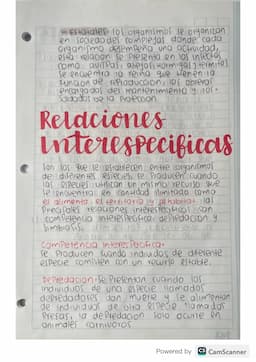 los organismos se organizan
en sociedades complejas donde cada
organismo desempeña una actividad,
esta relación se presenta en los insectos
como avispas, abejas, hormigas y termitas
se encuentra la reina que tienen la
función de reproducción, los obreros
encargados del mantenimiento y los
soldados la protección
Relaciones
interespecificas
Son las que se establecen entre organismos
de diferentes especies, se producen cuando
las especies utilizan un mismo recurso que
se encuentra en cantidad limitada como
el alimento, el territorio y
principales relaciones interespecificas son
competencia interespecifica, depredación y
simbiosis.
Competencia interespecifica:
se producen cuando individuos de diferente
especie compiten con un recurso estable.
Depredación: se presentan cuando los
individuos de una especie llamados
depredadores dan muerte y se alimentan
de individuos de otra especie llamados
presas, la depredación solo ocurre en
animales carnivoros
Powered by CamScanner